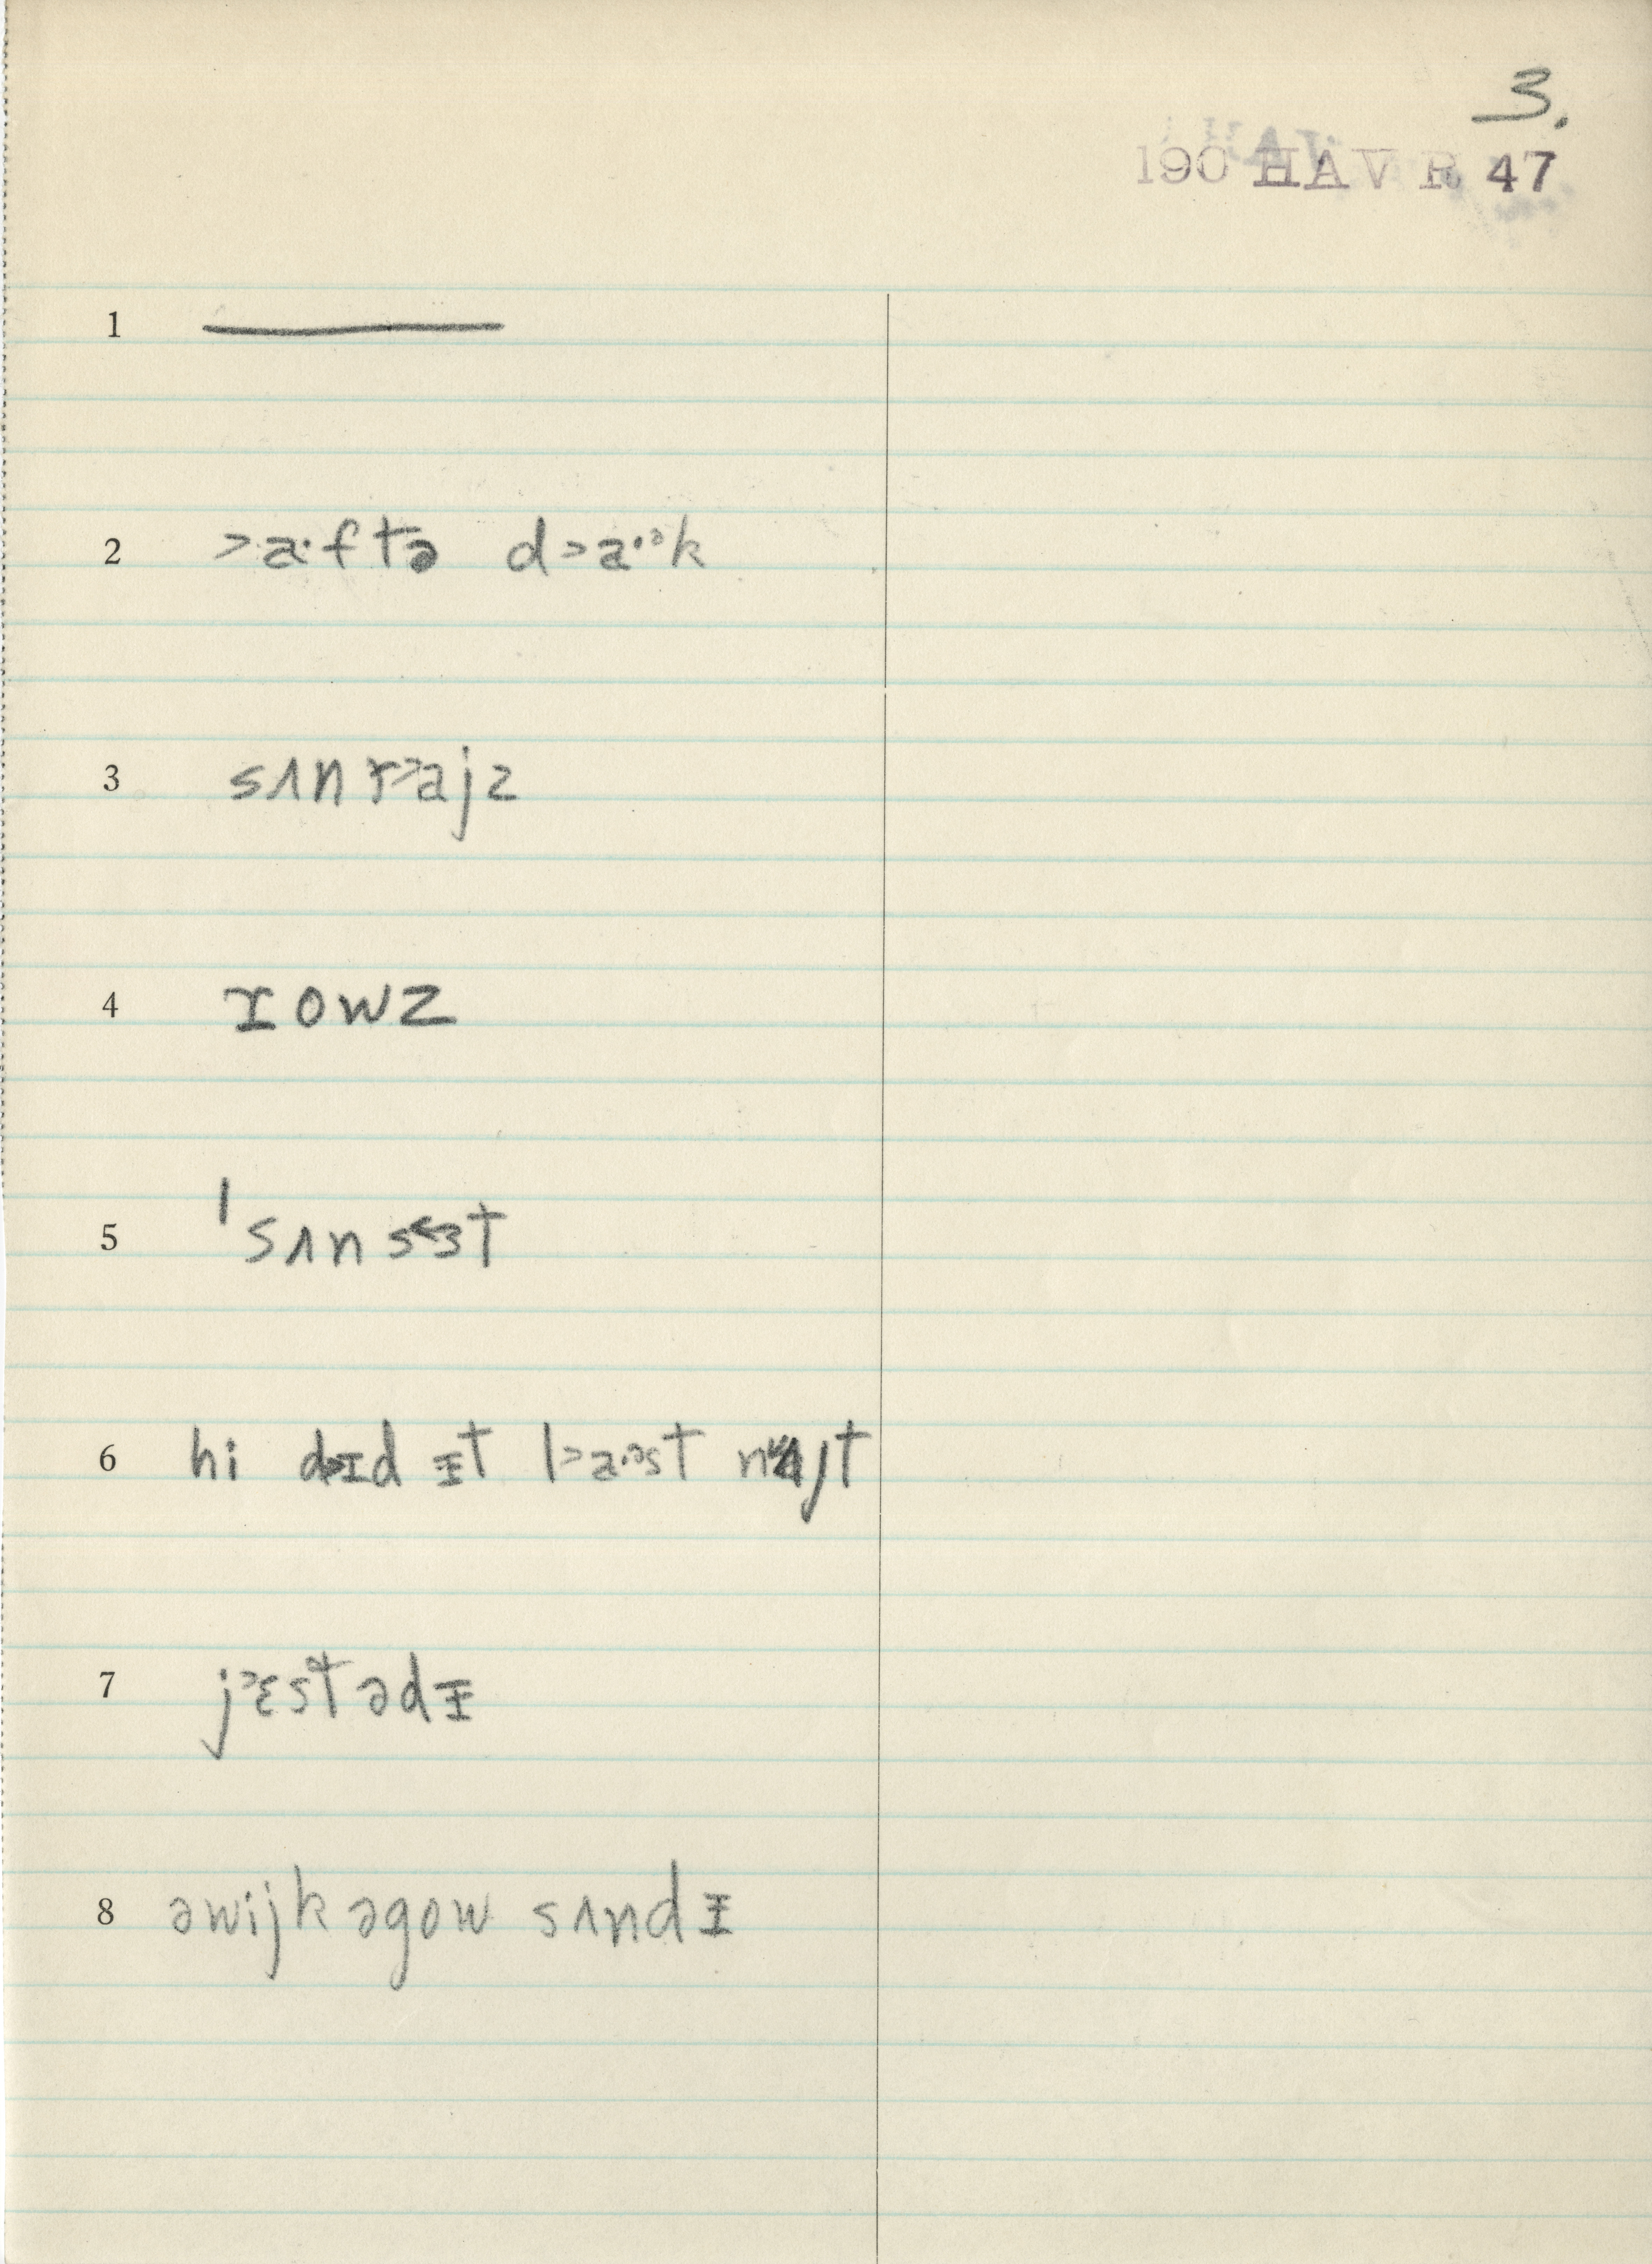 3.
190 HAV R 47
1 ———
2 >a·ftə d>a·ᵊk
3 sʌnr>ajz
4 ɪowz
5 ˈsʌns<ɜt
6 hi dɪd ɪt l>a·ᵊst najt
7 j>ɛstədɪ
8 əwijk əgow sʌndɪ